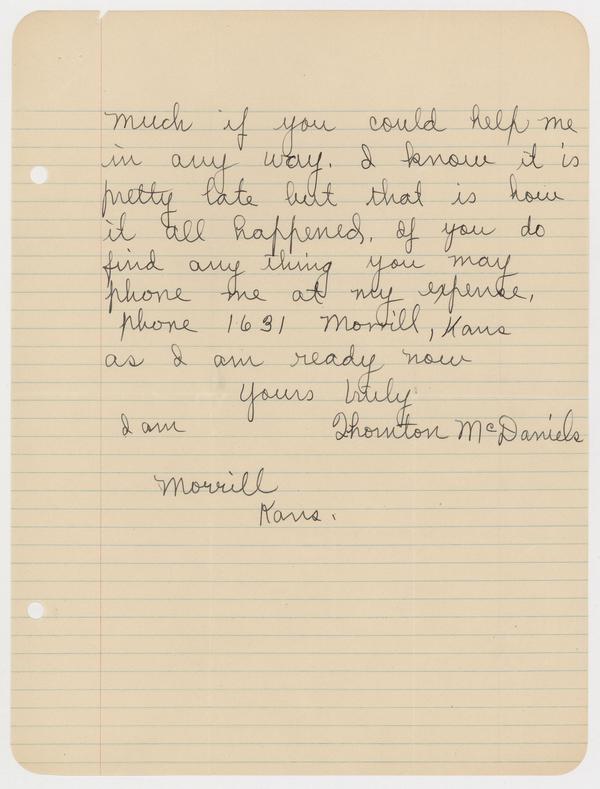 much if you could help me
in any way. I know it is
pretty late but that is how
it all happened. If you do
find any thing you may
phone me at my expense,
phone 1631 Morrill, Kans
as I am ready now
Yours truly
I am Thornton McDaniels
Morrill
Kans.